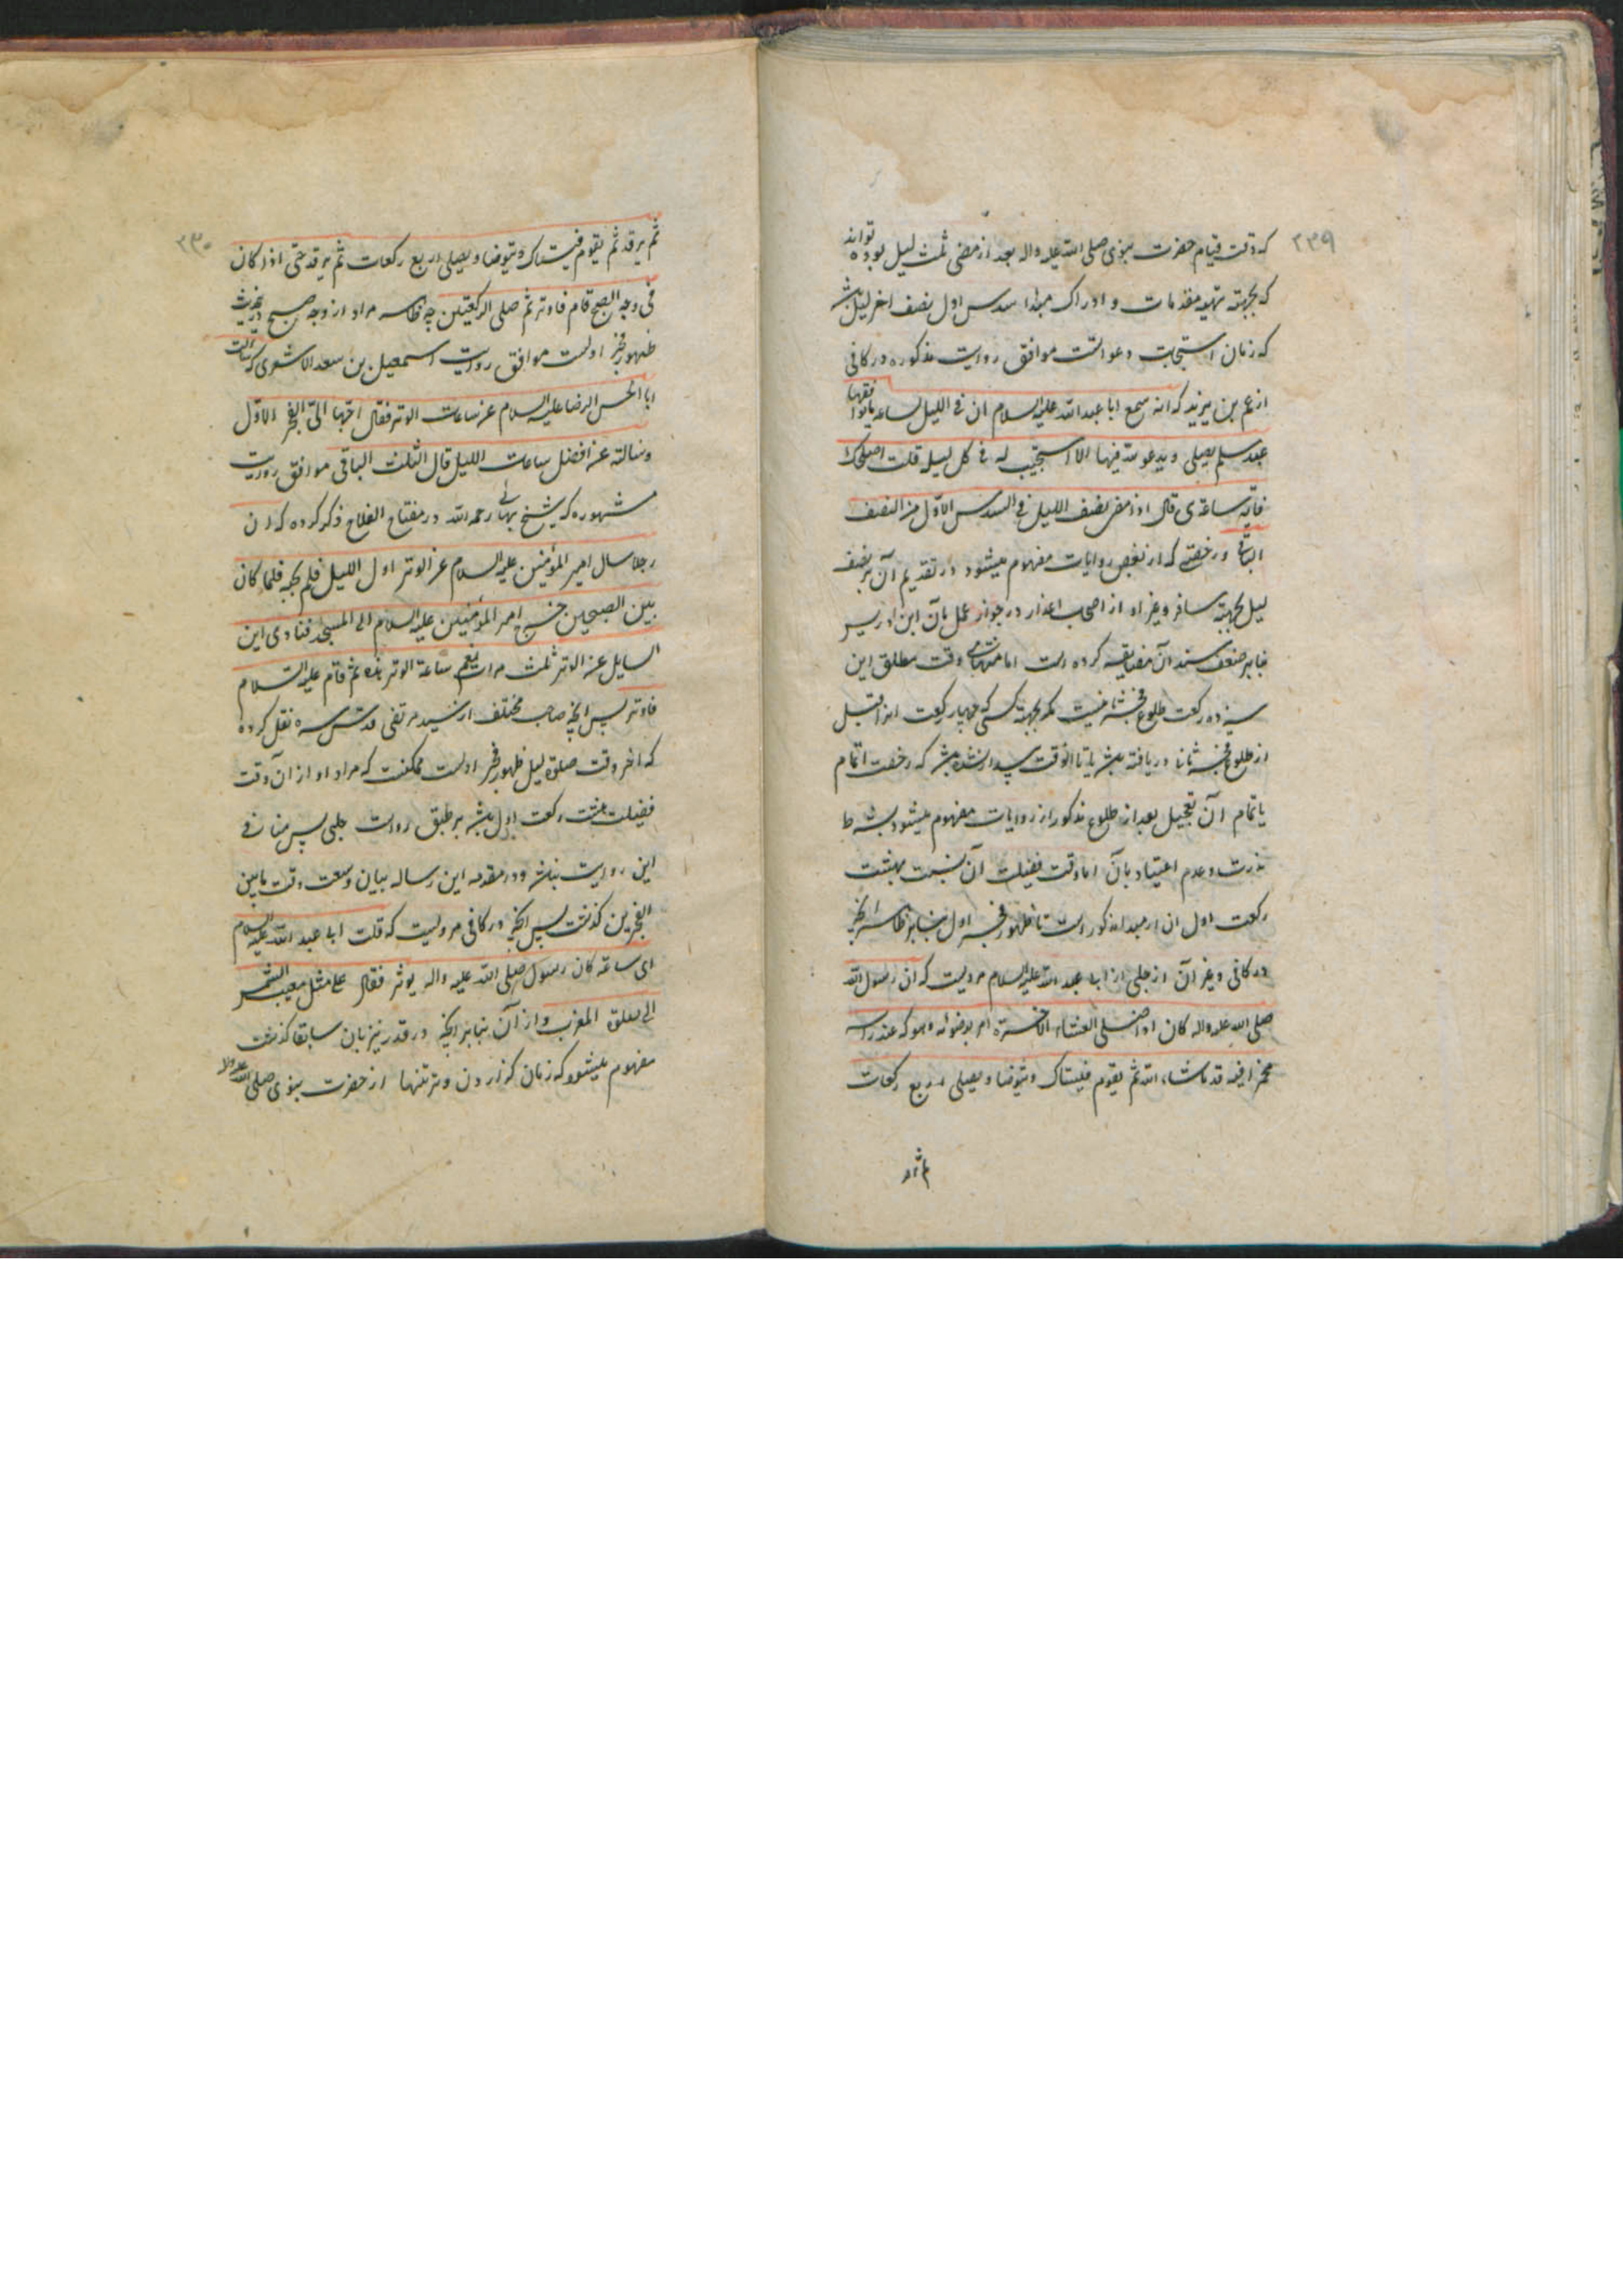 ۲۳۹
که وقت قیام حضرت نبوی صلی الله علیه واله بعد از مضی ثلث لیل بوده تواند
که بجهته تهیه مقدمات و ادراک مبداء سدس اول نصف اخر لیل باشد
که زمان استجابت دعواتست موافق روایت مذکوره در کافی
از عمر بن یزید که انه سمع ابا عبد الله علیه السلام ان فی اللیل لساعة ما یوافقها
عبد مسلم یصلی و یدعو الله فیها الا استجیب له فی کل لیلة قلت اصلحک الله
فایة ساعة هی قال اذا مضی نصف اللیل فی السدس الاول من النصف
الباقی ورخصتی که از بعض روایات مفهوم میشود در تقدیم آن بر نصف
لیل بجهته مسافر و غیر او از اصحاب اعذار در جواز عمل بآن ابن ادریس
بنابر ضعف سند آن مضایقه کرده است اما منتهای وقت مطلق این
سیزده رکعت طلوع فجر ثانیست مگر بجهته کسی که چهار رکعت انرا قبل
از طلوع فجر ثانی دریافته باشد یا تا انوقت بیدار نشده باشد که رخصت اتمام
یا تمام آن بتعجیل بعد از طلوع مذکور از روایات مفهوم میشود بشرط
ندرت و عدم اعتیاد بآن اما وقت فضیلت آن نسبت بهشت
رکعت اول ان از مبداء مذکور است تا ظهور فجر اول بنابر ظاهر انچه
در کافی و غیر آن از حلبی از ابی عبد الله علیه السلام مرویست که ان رسول الله
صلی الله علیه واله کان اذا صلی العشاء الاخرة امر بوضوئه و سواکه عند راسه
مخمرا فیرقد ما شاء الله ثم یقوم فیستاک و یتوضا و یصلی اربع رکعات
ثم یرقد
۲۳۰
ثم یرقد ثم یقوم فیستاک و یتوضا و یصلی اربع رکعات ثم یرقد حتی اذا کان
فی وجه الصبح قام فاوتر ثم صلی الرکعتین چه ظاهر مراد از وجه صبح در حدیث
ظهور فجر اولست موافق روایت اسمعیل بن سعد الاشعری که سالت
ابا الحسن الرضا علیه السلام عن ساعات الوتر فقال احبها الی الفجر الاول
و سالته عن افضل ساعات اللیل قال الثلث الباقی موافق روایت
مشهوره که شیخ بهائی رحمه الله در مفتاح الفلاح ذکر کرده که ان
رجلا سال امیر المؤمنین علیه السلام عن الوتر اول اللیل فلم یجبه فلما کان
بین الصبحین خرج امیر المؤمنین علیه السلام الی المسجد فنادی این
السایل عن الوتر ثلث مرات نعم ساعة الوتر هذه ثم قام علیه السلام
فاوتر پس انچه صاحب مختلف از سید مرتضی قدس سره نقل کرده
که اخر وقت صلوة لیل ظهور فجر اولست ممکنست که مراد او از آن وقت
فضیلت هشت رکعت اول باشد بر طبق روایت حلبی پس منافی
این روایت نباشد و در مقدمه این رساله بیان وسعت وقت مابین
الفجرین گذشت پس انچه در کافی مرویست که قلت ابا عبد الله علیه السلام
ای ساعة کان رسول صلی الله علیه واله یوتر فقال علی مثل مغیب الشمس
الی صلوة المغرب و از آن بنابر انچه در قدر نیز بان سابقا گذشت
مفهوم میشود که زمان گذاردن وتر تنها از حضرت نبوی صلی الله علیه واله